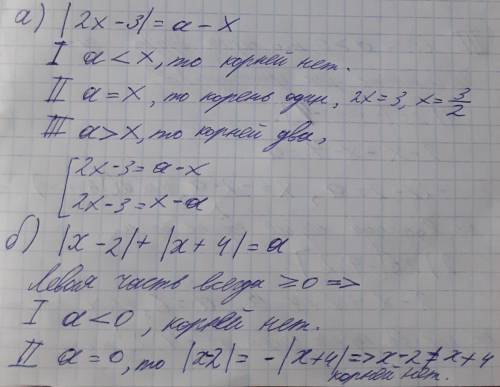 а) |2x-3| = a-x
I a<x, то корней нет.
II a=x, то корень один, 2x=3, x=3/2
III a>x, то корней два,
[2x-3=a-x
2x-3=x-a
б) |x-2|+|x+4|=a
Левая часть всегда ≥0 =>
I a<0, корней нет.
II a=0, то |x-2| = -|x+4| => x-2≠x+4
корней нет.